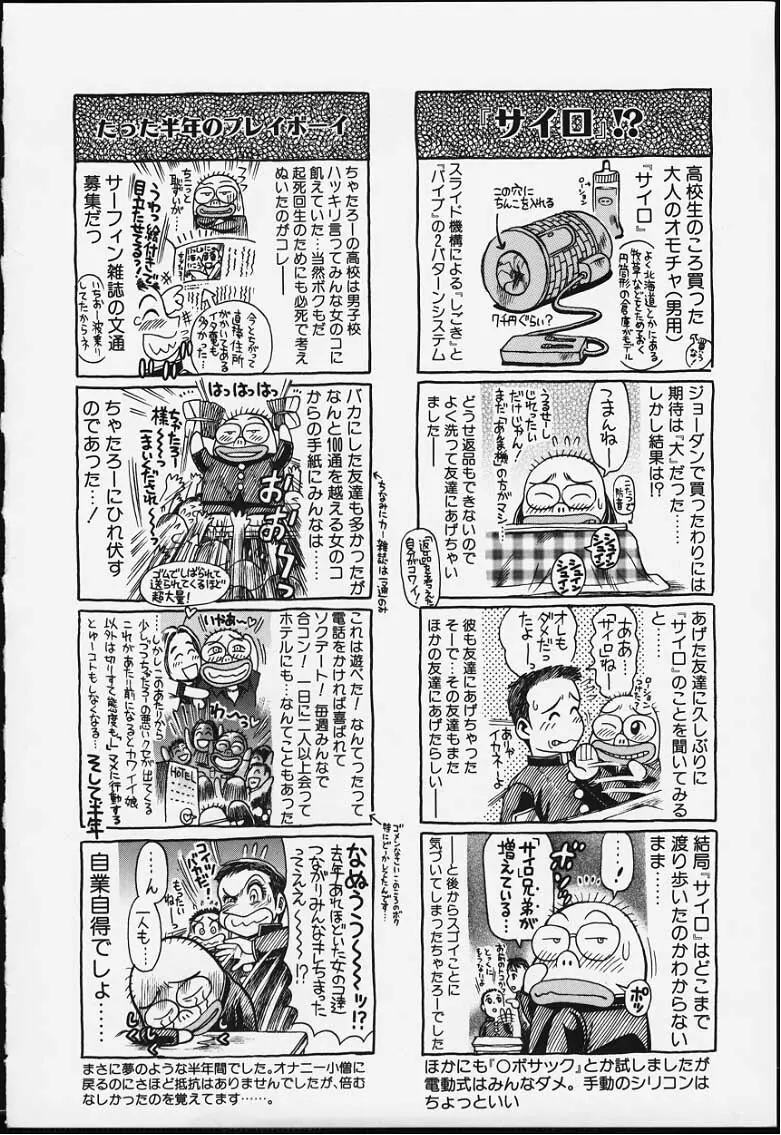 『サイロ』!?
高校生のころ買った
大人のオモチャ(男用)
『サイロ』
よく北海道とかにある
牧草などをためておく
円筒形の倉庫がモデル
ローション
この穴に
ちんこを入れる
7千円ぐらい?
スライド機構による『しごき』と
『バイブ』の2パターンシステム
ジョーダンで買ったわりには
期待は『大』だった……
しかし結果は!?
つまんねー
うるせーし
じれったい
だけじゃん!
まだ「あんま機」の方がマシ…
こたつで
防音
どうせ返品もできないので
よく洗って友達にあげちゃい
ました──
「返品を考えた
自分がコワイ!
あげた友達に久しぶりに
『サイロ』のことを聞いてみる
と……
ああ…
「サイロ」ね
オレも
ダメだっ
たよーっ
ありゃ
イカネーよ
彼も友達にあげちゃった
そーで…その友達もまた
ほかの友達にあげたらしい──
結局『サイロ』はどこまで
渡り歩いたのかわからない
まま……
ボンッ
「サイロ兄弟が
増えている…
ポッ
──と後からスゴイことに
気づいてしまったちゃたろーでした
ほかにも『○ボサック』とか試しましたが
電動式はみんなダメ。手動のシリコンは
ちょっといい
たった半年のプレイボーイ
ちゃたろーの高校は男子校
ハッキリ言ってみんな女のコに
飢えていた…当然ボクもだ
起死回生のためにも必死で考え
ぬいたのがコレ──
ちこっと
恥ずいが…
うわっ絵付きで
目立たせてるっ!
サーフィン雑誌の文通
募集だっ
いちおー波乗り
してたからネ
今とちがって
直接住所
がかいてある
イタズラも
多かった…
バカにした友達も多かったが
なんと100通を越える女のコ
からの手紙にみんなは……
はっはっはっ
ちゃたろー
様〜〜っ
おお〜っ
ゴムでしばられて
送られてくるほど
超大量!
ちゃたろーにひれ伏す
のであった…!
ちなみにカー雑誌は一通のみ
これは遊べた!なんてったって
電話をかければ喜ばれて
ソクデート!毎週みんなで
合コン!一日に二人以上会って
ホテルにも…なんてこともあった
いやあ〜
わ〜〜っ
HOTEL
しかしこのあたりから
少しづつちゃたろーの悪いクセが出てくる
これがあたり前になるとカワイイ娘
以外は切りすて態度も↓マメに行動する
とゆーコトもしなくなる…
そして半年
なぬううう〜〜〜〜ッ!?
去年あれほどいた女のコ達
つながりみんなキレちまった
ってええ〜〜〜!?
コイツ
バカだ…
もったい
ねぇ
……
…ん
一人も…
自業自得でしょ……
まさに夢のような半年間でした。オナニー小僧に
戻るのにさほど抵抗はありませんでしたが、倍む
なしかったのを覚えてます……。